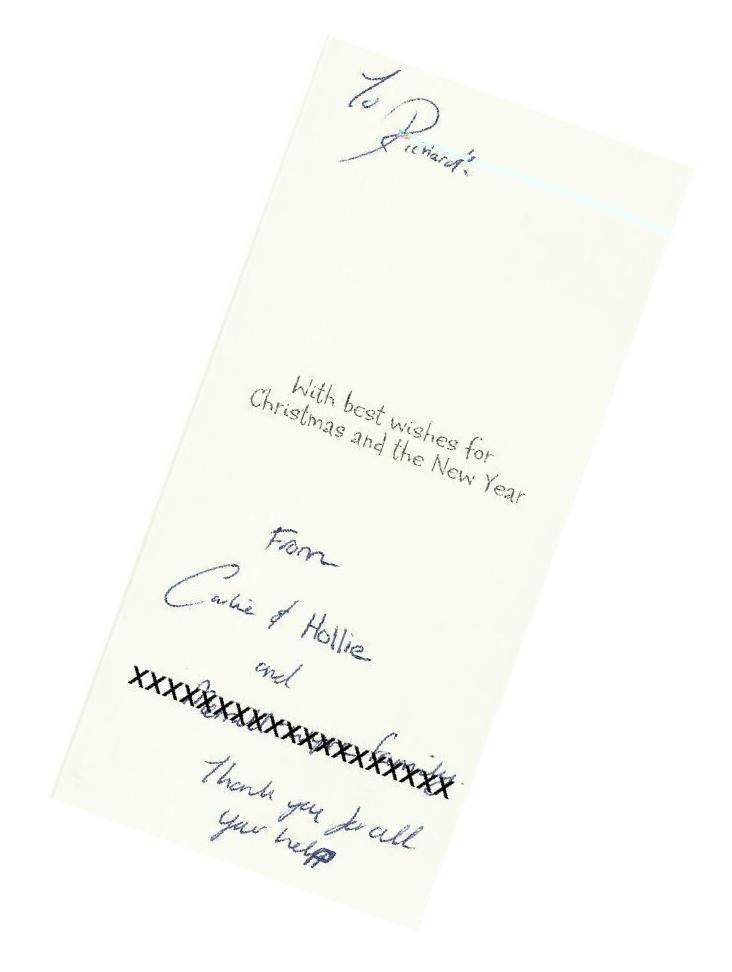 To
Richard's
With best wishes for
Christmas and the New Year
From
& Hollie
and
XXXXXXXXXXXXXXXXXXXX
family
Thank you for all
your help